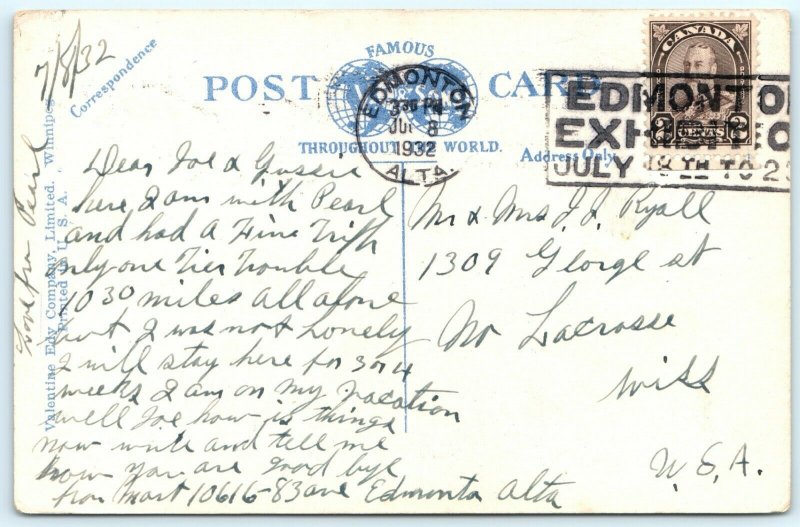 7/8/32
Correspondence
FAMOUS
POST CARD
THROUGHOUT WORLD.
Address Only
CANADA
2 CENTS 2
EDMONTON
3 PM
JUL 8
1932
ALTA.
EDMONTO
EXHIBITIO
JULY 18TH TO 23
Valentine Edy Company, Limited. Winnipeg
Printed in U. S. A.
Love from Pearl
Dear Joe & Gussie
here I am with Pearl
and had a Fine Trip
only one Tier Trouble
1030 miles all alone
but I was not Lonely
I will stay here for 3 or 4
weeks I am on my vacation
well Joe how is things
now write and tell me
how you are good bye
from Mart 10616-83 ave Edmonta Alta
Mr & Mrs J. J. Ryall
1309 George st
No Lacrosse
Wiss
U.S.A.